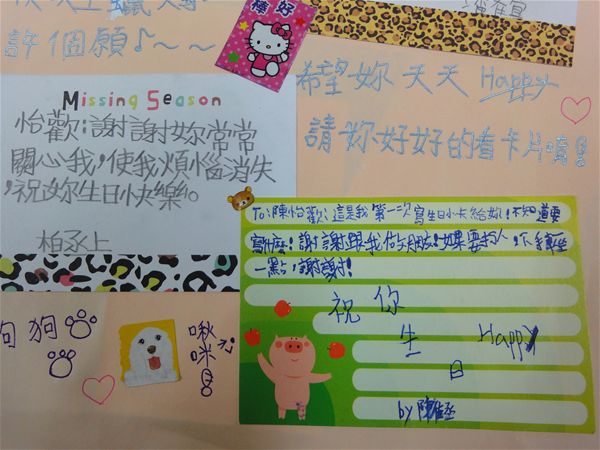 許個願♪~~
棒 好
希望妳天天 Happy
請妳好好的看卡片唷!
Missing Season
怡歡:謝謝妳常常
關心我,使我煩惱消失
,祝妳生日快樂。
柏丞上
To:陳怡歡:這是我第一次寫生日小卡給妳,不知道要
寫什麼!謝謝跟我做好朋友!如果要打人,下手輕
一點,謝謝!
祝你
生 Happy
日
by 陳
狗狗
啾
咪